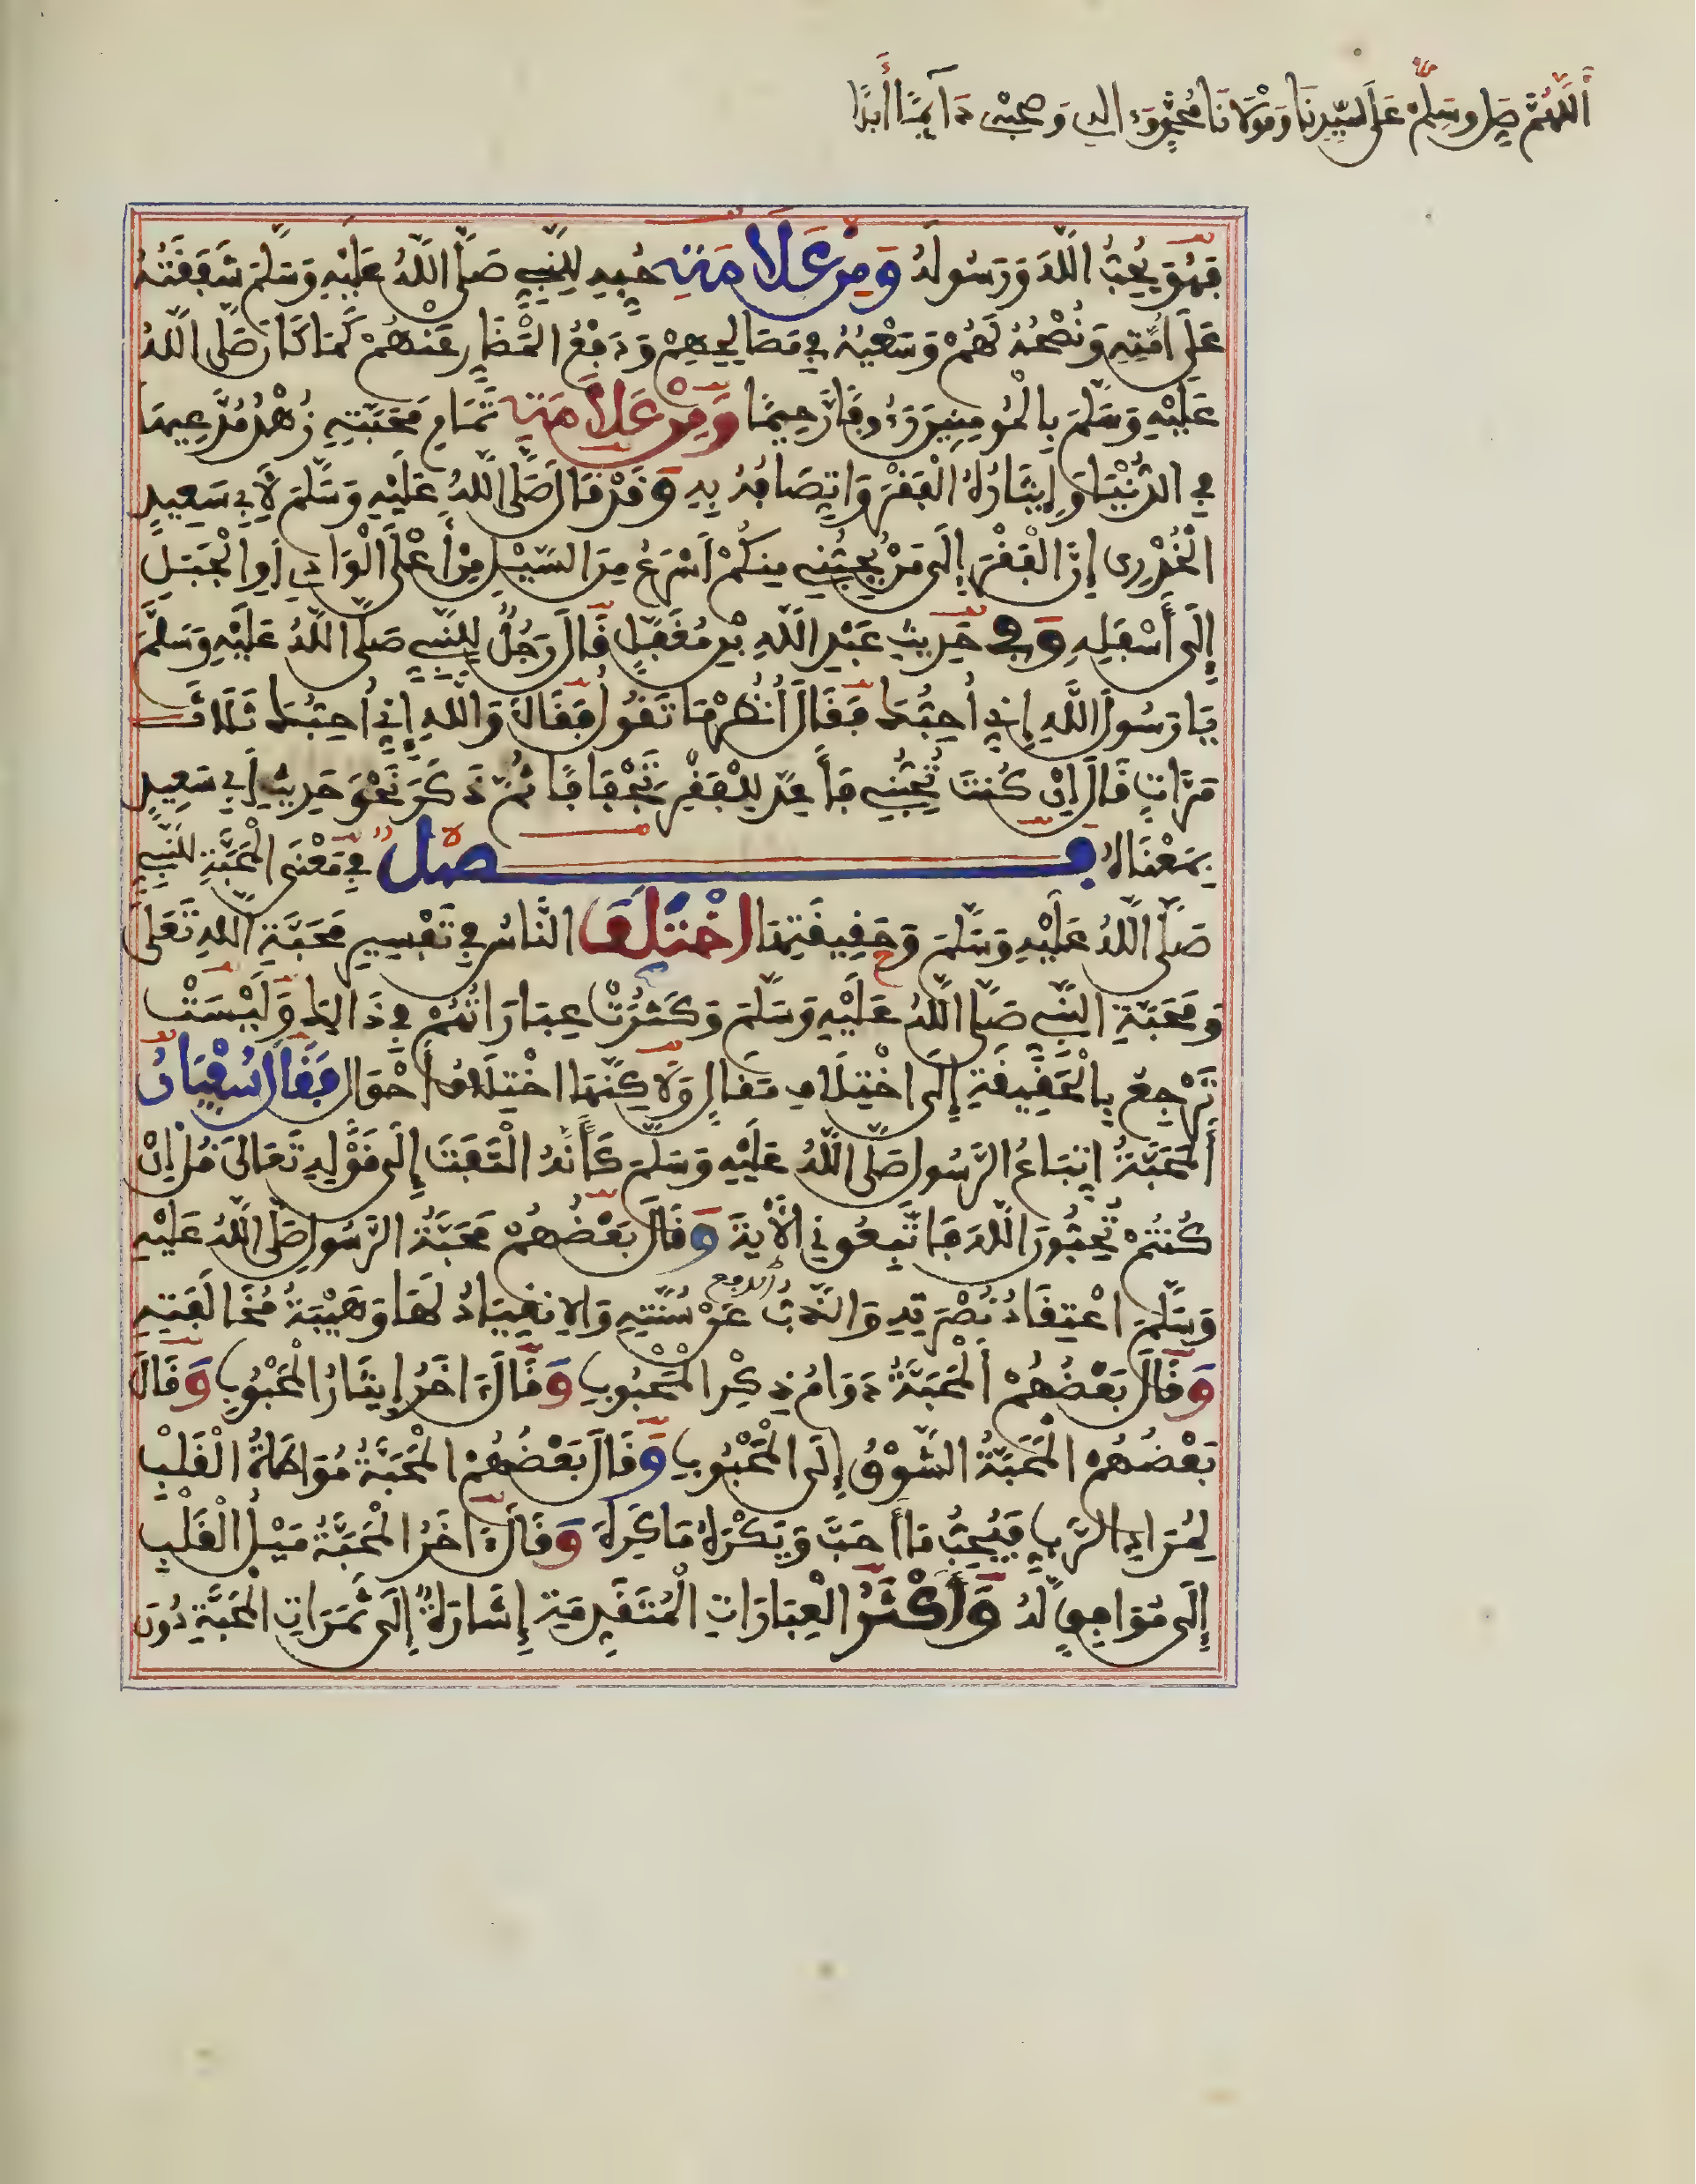 أَللَّهُمَّ صَلِّ وسَلِّمْ عَلَى سَيِّدِنَا وَمَوْلَانَا مُحَمَّدٍ وَءَالِهِ وَصَحْبِهِ دَآئِمًا أَبَدًا
فَهُوَ يُحِبُّ اللَّهَ وَرَسُولَهُ وَمِنْ عَلَامَتِهِ حُبِّهِ لِلنَّبِيِّ صَلَّى اللَّهُ عَلَيْهِ وَسَلَّمَ شَفَقَتُهُ
عَلَى أُمَّتِهِ وَنُصْحُهُ لَهُمْ وَسَعْيُهُ فِي مَصَالِحِهِمْ وَدَفْعُ الْمَضَارِّ عَنْهُمْ كَمَا كَانَ صَلَّى اللَّهُ
عَلَيْهِ وَسَلَّمَ بِالْمُومِنِينَ رَءُوفًا رَّحِيمًا وَمِنْ عَلَامَةِ تَمَامِ مَحَبَّتِهِ زُهْدُ مُدَّعِيهَا
فِي الدُّنْيَا وَإِيثَارُهُ الْفَقْرَ وَاتِّصَافُهُ بِهِ وَقَدْ قَالَ صَلَّى اللَّهُ عَلَيْهِ وَسَلَّمَ لِأَبِي سَعِيدٍ
الْخُدْرِي إِنَّ الْفَقْرَ إِلَى مَنْ يُحِبُّنِي مِنكُمْ أَسْرَعُ مِنَ السَّيْلِ مِنْ أَعْلَى الْوَادِي أَوِ الْجَبَلِ
إِلَى أَسْفَلِهِ وَفِي حَدِيثِ عَبْدِ اللَّهِ بْنِ مُغَفَّلٍ قَالَ رَجُلٌ لِلنَّبِيِّ صَلَّى اللَّهُ عَلَيْهِ وَسَلَّمَ
يَا رَسُولَ اللَّهِ إِنِّي أُحِبُّكَ فَقَالَ انْظُرْ مَا تَقُولُ فَقَالَ وَاللَّهِ إِنِّي أُحِبُّكَ ثَلَاثَ
مَرَّاتٍ قَالَ إِن كُنتَ تُحِبُّنِي فَأَعِدَّ لِلْفَقْرِ تِجْفَافًا ثُمَّ ذَكَرَ نَحْوَ حَدِيثِ أَبِي سَعِيدٍ
بِمَعْنَاهُ فصل فِي مَعْنَى الْمَحَبَّةِ لِلنَّبِيِّ
صَلَّى اللَّهُ عَلَيْهِ وَسَلَّمَ وَحَقِيقَتِهَا اخْتَلَفَ النَّاسُ فِي تَفْسِيرِ مَحَبَّةِ اللَّهِ تَعَلَى
وَمَحَبَّةِ النَّبِيِّ صَلَّى اللَّهُ عَلَيْهِ وَسَلَّمَ وَكَثُرَتْ عِبَارَاتُهُمْ فِي ذَالِكَ وَلَيْسَتْ
تَرْجِعُ بِالْحَقِيقَةِ إِلَى اخْتِلَافِ مَقَالٍ وَلَاكِنَّهَا اخْتِلَافُ أَحْوَالٍ فَقَالَ سُفْيَانُ
أَلْمَحَبَّةُ اتِّبَاعُ الرَّسُولِ صَلَّى اللَّهُ عَلَيْهِ وَسَلَّمَ كَأَنَّهُ الْتَفَتَ إِلَى قَوْلِهِ تَعَالَى قُلْ إِن
كُنتُمْ تُحِبُّونَ اللَّهَ فَاتَّبِعُونِي الْأَيَةَ وَقَالَ بَعْضُهُمْ مَحَبَّةُ الرَّسُولِ صَلَّى اللَّهُ عَلَيْهِ
وَسَلَّمَ اعْتِقَادُ نُصْرَتِهِ وَالذَّبُّ عَنْ سُنَّتِهِ وَالِانقِيَادُ لَهَا وَهَيْبَةُ مُخَالَفَتِهِ
وَقَالَ بَعْضُهُمْ أَلْمَحَبَّةُ دَوَامُ ذِكْرِ الْمَحْبُوبِ وَقَالَ ءَاخَرُ إِيثَارُ الْمَحْبُوبِ وَقَالَ
بَعْضُهُمْ الْمَحَبَّةُ الشَّوْقُ إِلَى الْمَحْبُوبِ وَقَالَ بَعْضُهُمْ الْمَحَبَّةُ مُوَاطَاةُ الْقَلْبِ
لِمُرَادِ الرَّبِّ فَيُحِبُّ مَا أَحَبَّ وَيَكْرَهُ مَا كَرِهَ وَقَالَ ءَاخَرُ الْمَحَبَّةُ مَيْلُ الْقَلْبِ
إِلَى مُوَافِقٍ لَّهُ وَأَكْثَرُ الْعِبَارَاتِ الْمُتَقَدِّمَةِ إِشَارَةٌ إِلَى ثَمَرَاتِ الْمَحَبَّةِ دُونَ